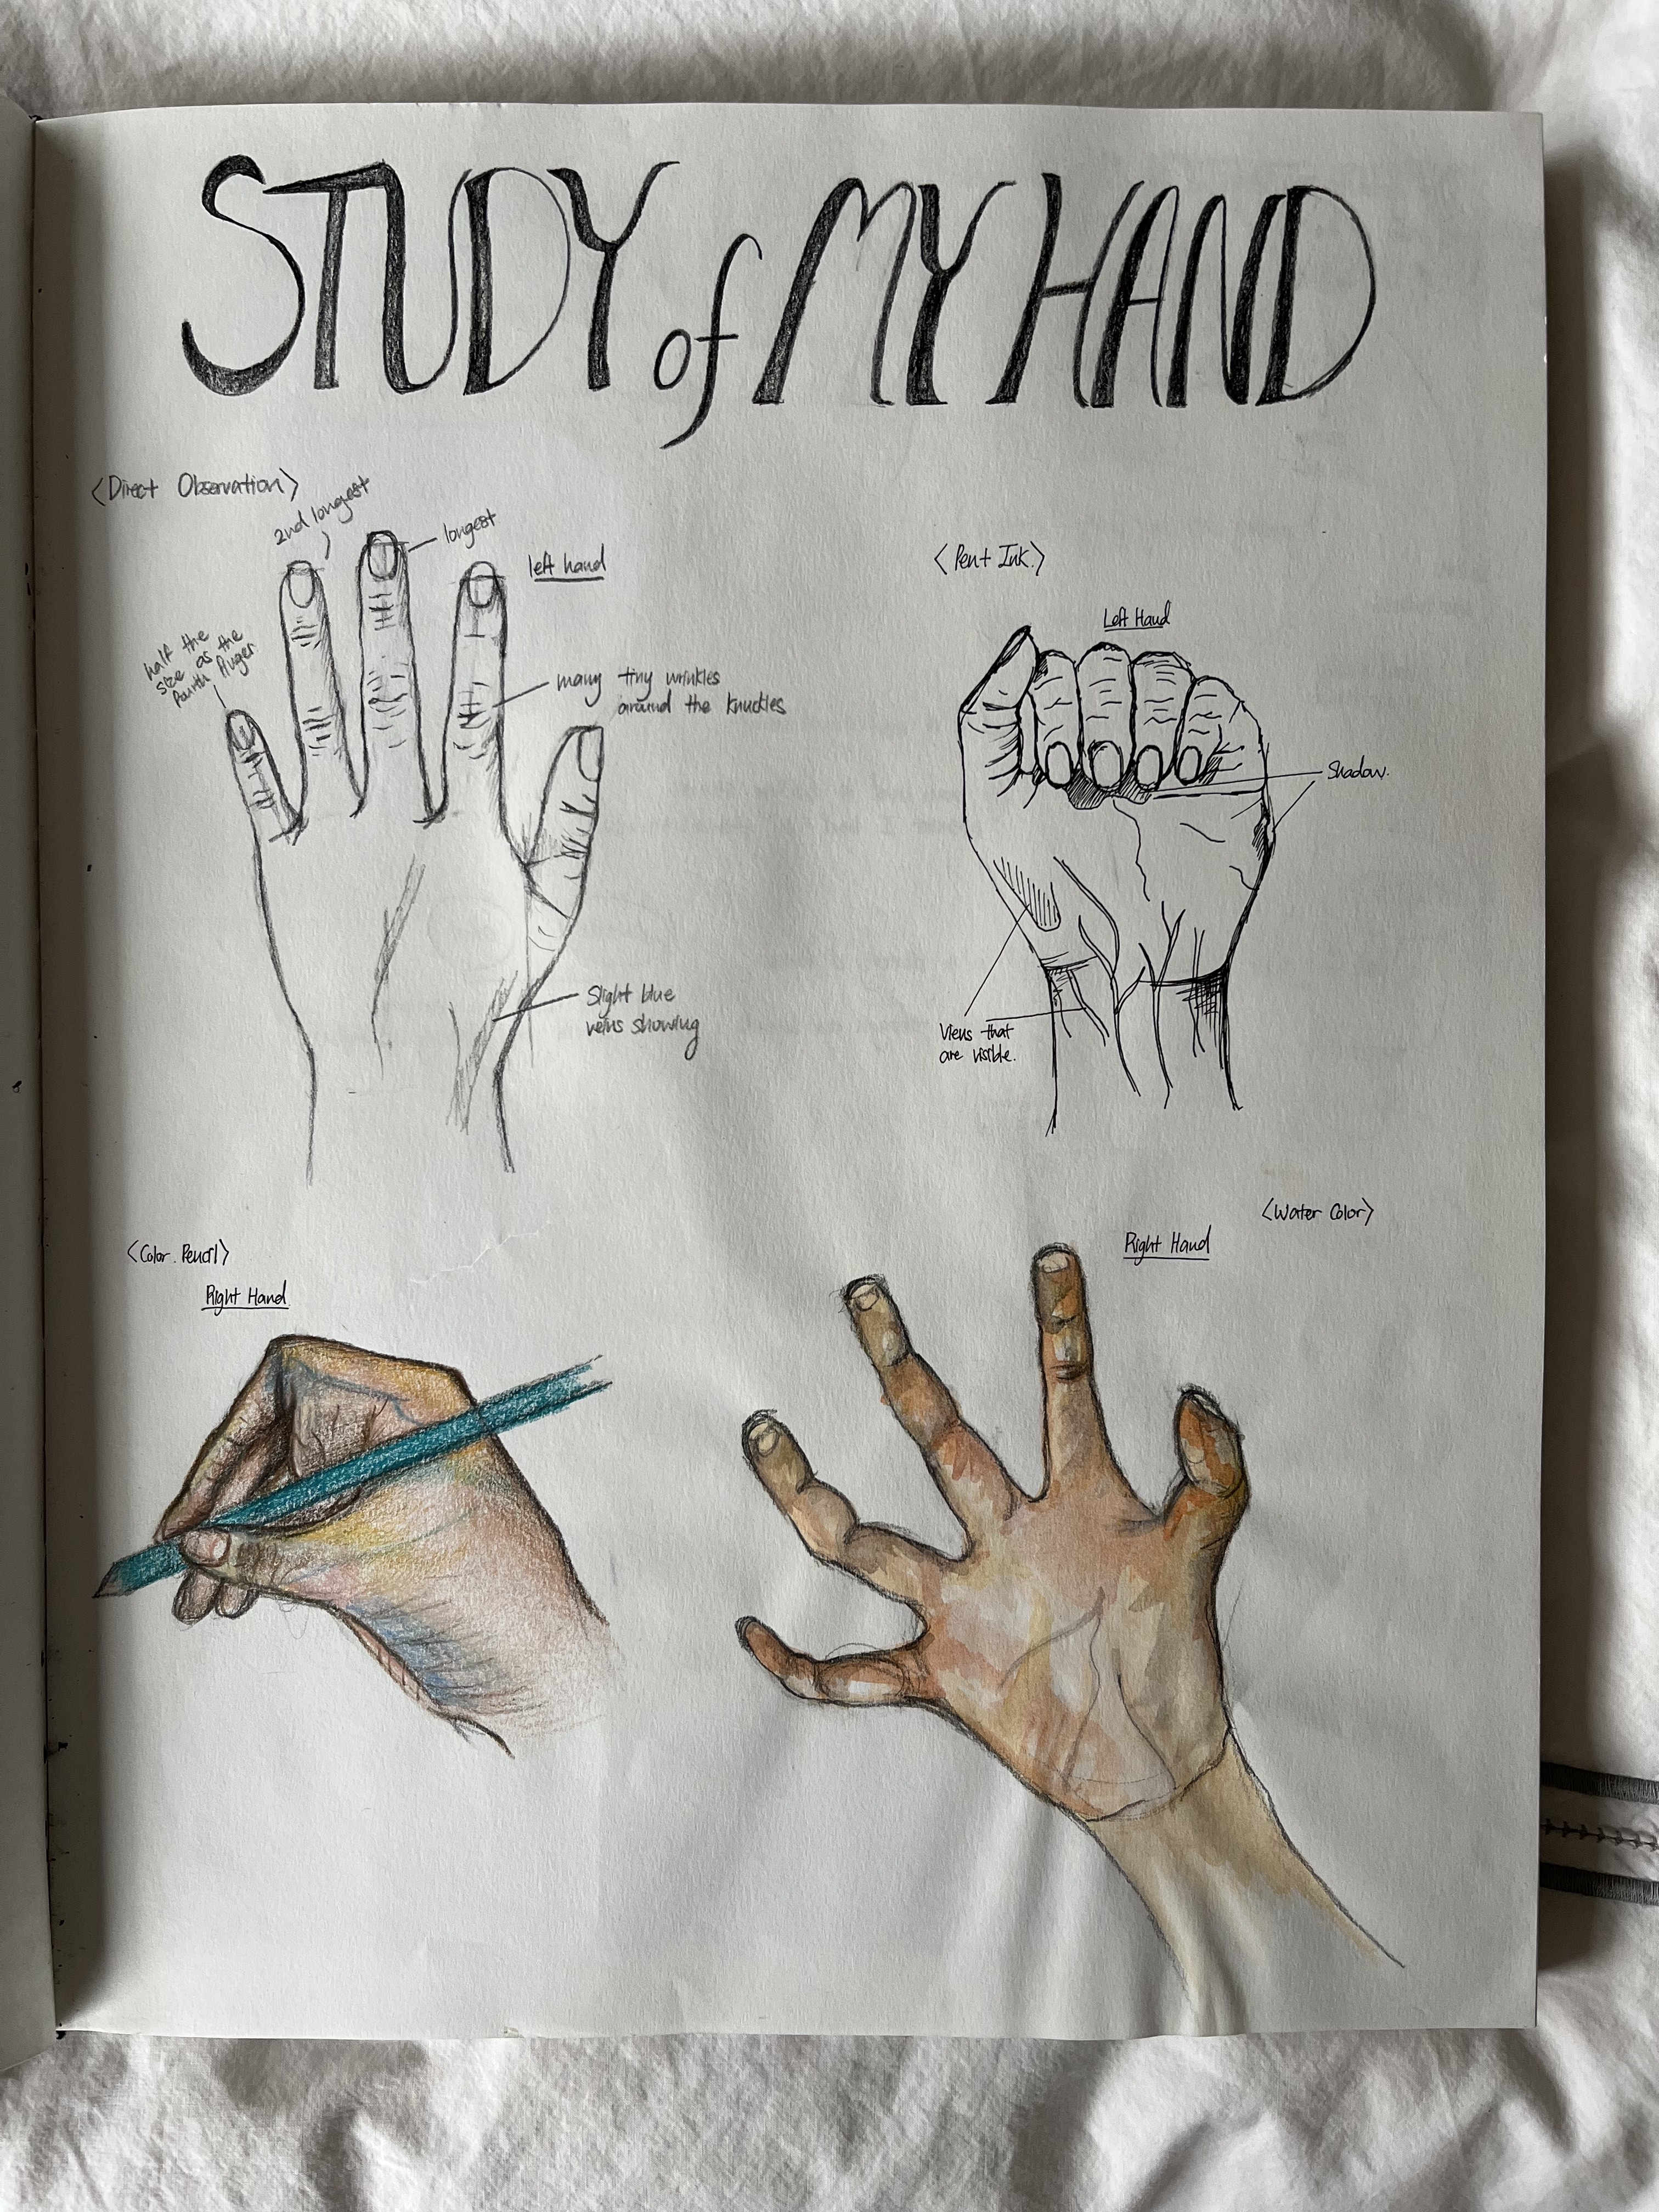 STUDY of MY HAND
<Direct Observation>
2nd longest
longest
left hand
half the
size as the
fourth finger
many tiny wrinkles
around the knuckles
Slight blue
veins showing
<Pen + Ink.>
Left Hand
Shadow.
Viens that
are visible.
<Color. Pencil>
Right Hand
<Water Color>
Right Hand